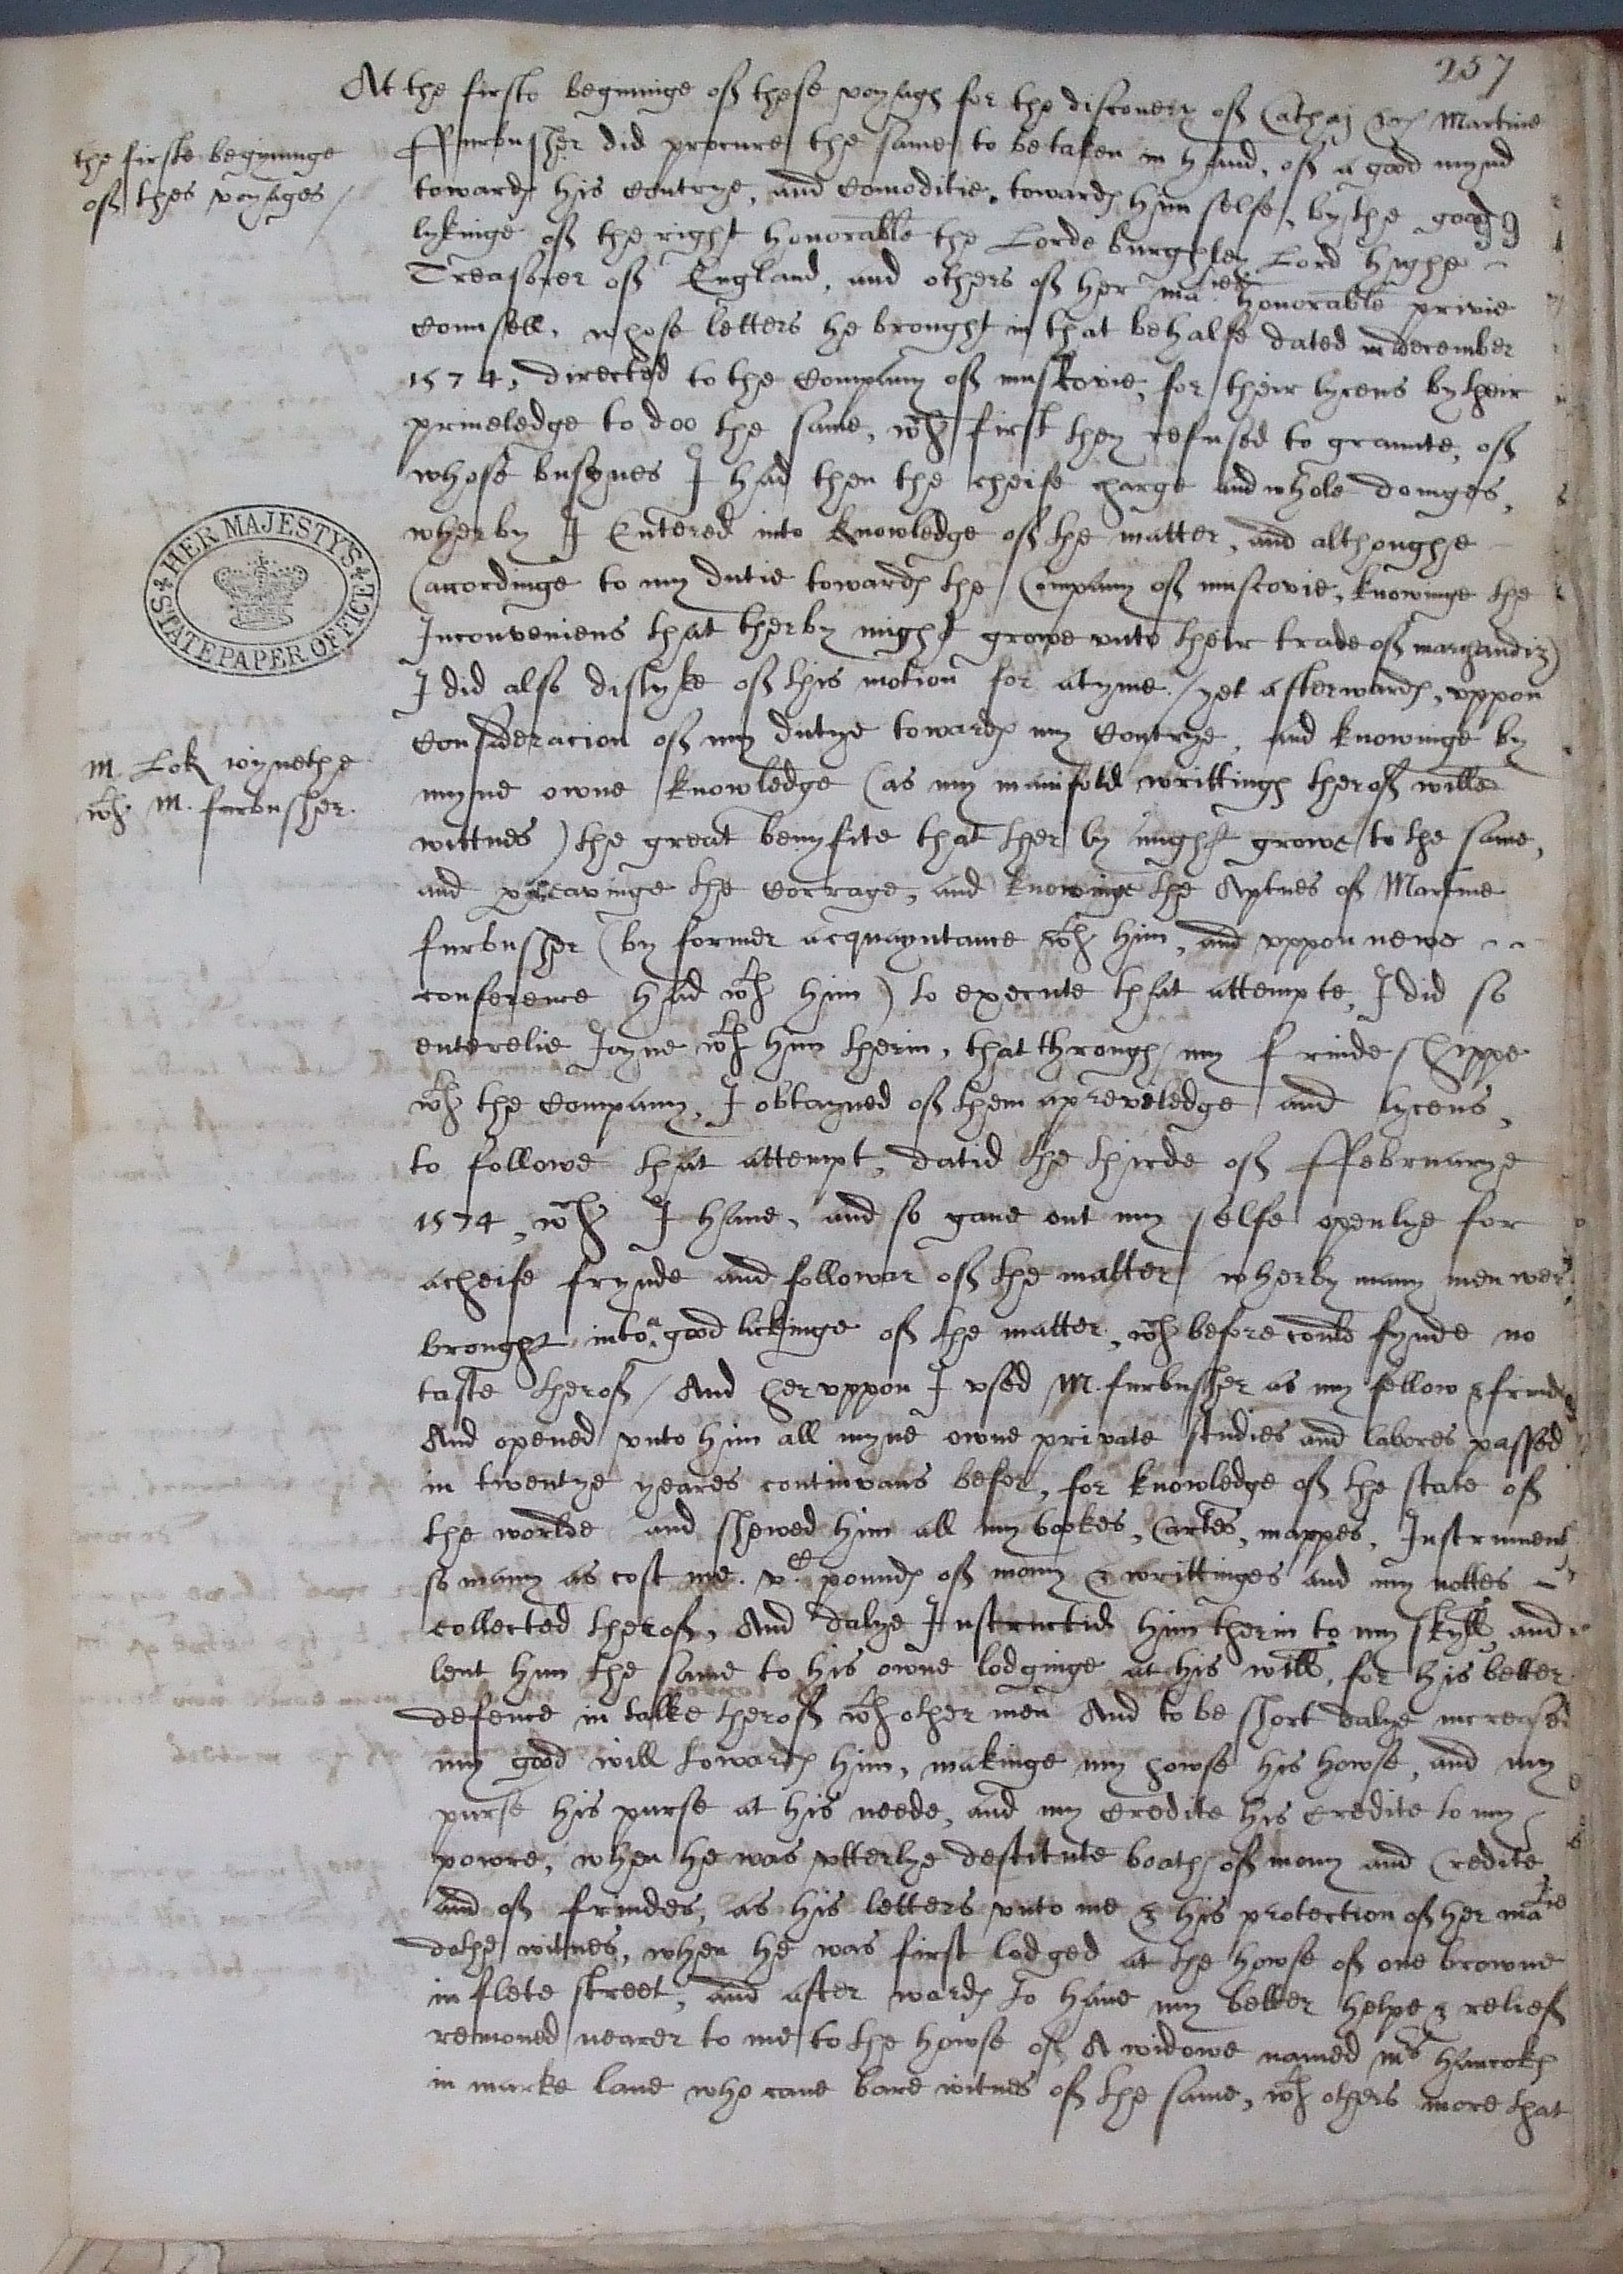 257
At the firste beginninge off these voyages for the discovery off Cathaj Martine
the firste begynninge
off thes voyages /
ffurbusher did procure the same to be taken in hand, off a good mynd
towards his contrye, and comoditie, towards him selfe, by the good
99
lykinge off the right honorable the Lorde burghley Lord highe
Treasorer off England, and others off her maties honorable privie
counsell, whose letters he brought in that behalfe dated in december
1574, directed to the company off muskovie, for their lycens by their
priveledge to doo the same, wch first they refused to graunte, off
whose busynes I had then the cheife charge and whole doinges,
wherby I Entered into knowledge off the matter, and althoughe
HER MAJESTY'S STATE PAPER OFFICE
(accordinge to my dutie towards the Company off muscovie, knowinge the
Inconveniens that therby might growe unto their trade off marchandiz)
I did also dislyke off this motion for a tyme. / yet afterwards, uppon
consideracion off my dutye towards my contrye, and knowinge by
M. Lok ioynethe
wth M. furbusher.
myne owne knowledge (as my manifold writtings theroff wille
wittnes) the great benyfite that therby might growe to the same,
and the corrage, and knowinge the Aptnes off Martine
furbusher (by former acquayntance wth him, and uppon newe
conference had wth him) to execute that attempte, I did so
enterelie Joyne wth him therin, that through my frindeshippe
wth the company, I obtayned off them a preveledge and lycens,
to followe that attempt, datid the thirde off ffebruarye
1574, wch I have, and so gave out my selfe openlye for
a cheife frynde and followar off the matter / wherby many men wer
brought into a good likinge off the matter, wch before could fynde no
taste theroff / And heruppon I used M. furbusher as my fellow & frind
And opened unto him all myne owne private studies and labores passed
in twentye yeares continvans befor, for knowledge off the state off
the worlde and shewed him all my bookes, Cartes, mappes, Instrument
so many as cost me vC pounds off mony & writtinges and my nottes
collected theroff, And dalye Instructid him therin to my skyll, and
lent him the same to his owne lodginge at his will, for his better
defence in talke theroff wth other men And to be short dalye increased
my good will towards him, makinge my howse his howse, and my
purse his purse at his neede, and my credite his credite to my
powre, when he was utterlye destitute boath off mony and Credite
and off frindes, as his letters unto me & his protection off her matie
dothe witnes, when he was first lodged at the howse off one browne
in flete street, and after wards to have my better helpe & relieff
removed nearer to me to the howse off A widowe named mrs Hancoks
in marke lane who cane bare witnes off the same, wth others more that